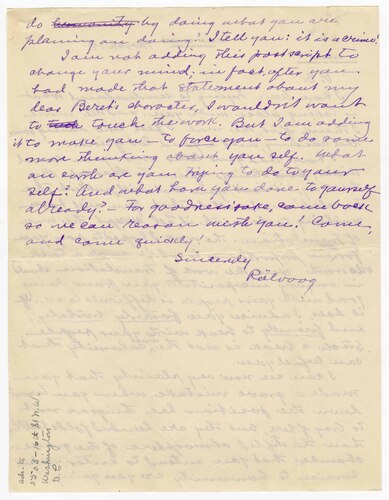 do humanity by doing what you are
planning on doing? I tell you: it is a crime!
I am not adding this postscript to
change your mind; in fact, after you
had made that statement about my
dear Beret's character, I wouldn't want
to touch the work. But I am adding
it to make you — to force you — to do some
more thinking about your self. What
on earth are you trying to do to your
self? And what have you done to yourself
already? — For goodness sake, come back
so we can reason with you! Come,
and come quickly!
Sincerely
Rölvaag
1503-16th St N.W.
Washington
D.C.